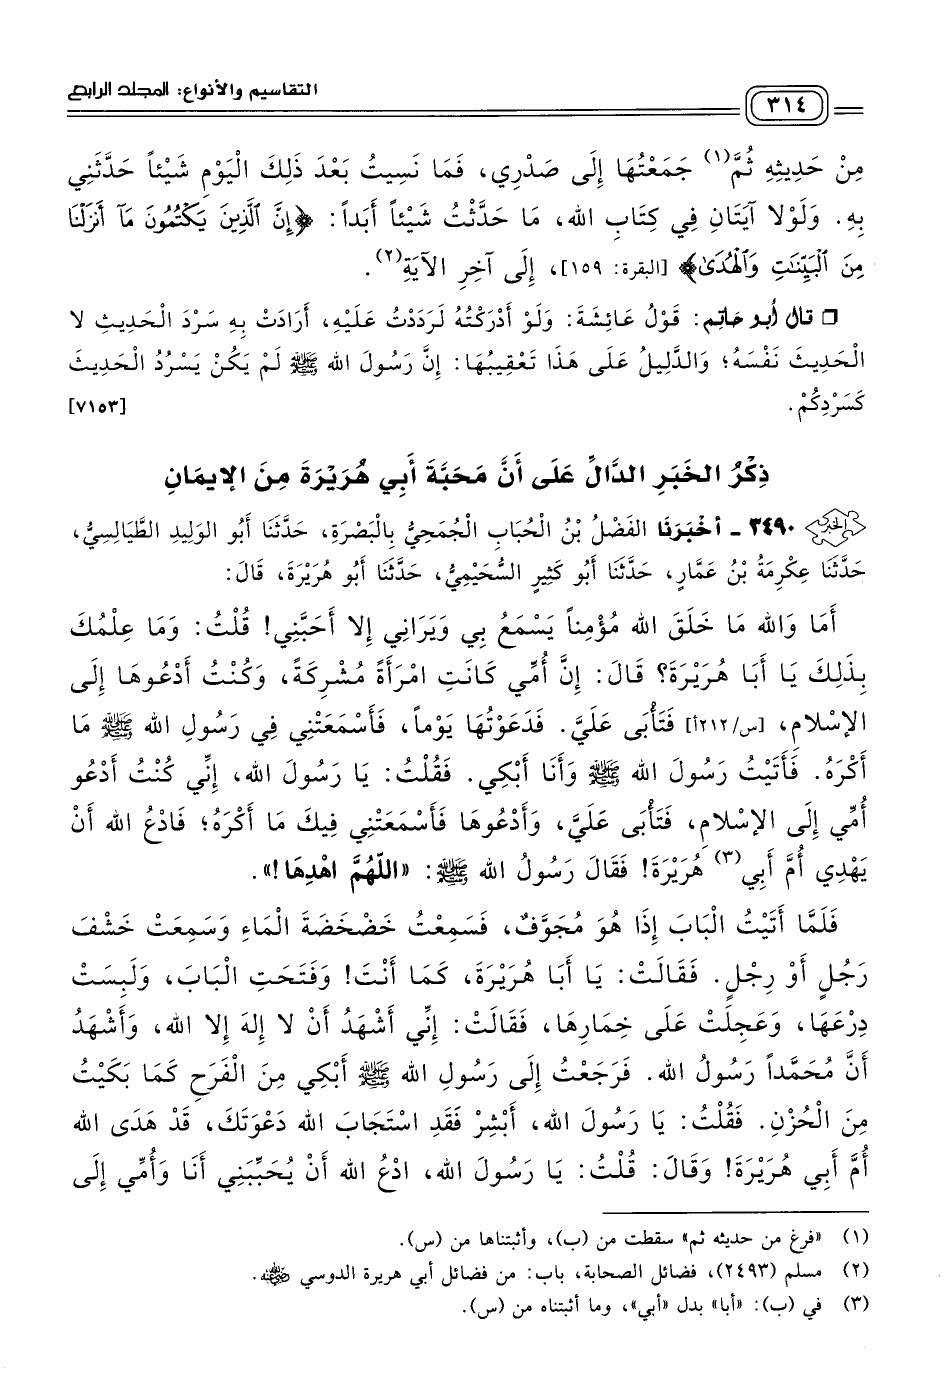 التقاسيم والأنواع: المجلد الرابع
٣١٤
مِنْ حَدِيثِهِ ثُمَّ(١) جَمَعْتُهَا إِلَى صَدْرِي، فَمَا نَسِيتُ بَعْدَ ذَلِكَ الْيَوْمِ شَيْئاً حَدَّثَنِي
بِهِ. وَلَوْلا آيَتَانِ فِي كِتَابِ الله، مَا حَدَّثْتُ شَيْئاً أَبَداً: ﴿إِنَّ ٱلَّذِينَ يَكْتُمُونَ مَآ أَنزَلْنَا
مِنَ ٱلْبَيِّنَٰتِ وَٱلْهُدَىٰ﴾ [البقرة: ١٥٩]، إِلَى آخِرِ الآيَةِ(٢).
❑ قال أبو حاتم: قَوْلُ عَائِشَةَ: وَلَوْ أَدْرَكْتُهُ لَرَدَدْتُ عَلَيْهِ، أَرَادَتْ بِهِ سَرْدَ الْحَدِيثِ لا
الْحَدِيثَ نَفْسَهُ؛ وَالدَّلِيلُ عَلَى هَذَا تَعْقِيبُهَا: إِنَّ رَسُولَ الله ﷺ لَمْ يَكُنْ يَسْرُدُ الْحَدِيثَ
كَسَرْدِكُمْ. [٧١٥٣]
ذِكْرُ الخَبَرِ الدَّالِّ عَلَى أَنَّ مَحَبَّةَ أَبِي هُرَيْرَةَ مِنَ الإيمَانِ
الخبر ٣٤٩٠ ـ أَخْبَرَنَا الفَضْلُ بْنُ الْحُبَابِ الْجُمَحِيُّ بِالْبَصْرَةِ، حَدَّثَنَا أَبُو الوَلِيدِ الطَّيَالِسِيُّ،
حَدَّثَنَا عِكْرِمَةُ بْنُ عَمَّارٍ، حَدَّثَنَا أَبُو كَثِيرٍ السُّحَيْمِيُّ، حَدَّثَنَا أَبُو هُرَيْرَةَ، قَالَ:
أَمَا وَالله مَا خَلَقَ الله مُؤْمِناً يَسْمَعُ بِي وَيَرَانِي إِلا أَحَبَّنِي! قُلْتُ: وَمَا عِلْمُكَ
بِذَلِكَ يَا أَبَا هُرَيْرَةَ؟ قَالَ: إِنَّ أُمِّي كَانَتِ امْرَأَةً مُشْرِكَةً، وَكُنْتُ أَدْعُوهَا إِلَى
الإسْلامِ، [س/٢١٢أ] فَتَأْبَى عَلَيَّ. فَدَعَوْتُهَا يَوْماً، فَأَسْمَعَتْنِي فِي رَسُولِ الله ﷺ مَا
أَكْرَهُ. فَأَتَيْتُ رَسُولَ الله ﷺ وَأَنَا أَبْكِي. فَقُلْتُ: يَا رَسُولَ الله، إِنِّي كُنْتُ أَدْعُو
أُمِّي إِلَى الإسْلامِ، فَتَأْبَى عَلَيَّ، وَأَدْعُوهَا فَأَسْمَعَتْنِي فِيكَ مَا أَكْرَهُ؛ فَادْعُ الله أَنْ
يَهْدِي أُمَّ أَبِي(٣) هُرَيْرَةَ! فَقَالَ رَسُولُ الله ﷺ: «اللَّهُمَّ اهْدِهَا!».
فَلَمَّا أَتَيْتُ الْبَابَ إِذَا هُوَ مُجَوَّفٌ، فَسَمِعْتُ خَضْخَضَةَ الْمَاءِ وَسَمِعَتْ خَشْفَ
رَجُلٍ أَوْ رِجْلٍ. فَقَالَتْ: يَا أَبَا هُرَيْرَةَ، كَمَا أَنْتَ! وَفَتَحَتِ الْبَابَ، وَلَبِسَتْ
دِرْعَهَا، وَعَجِلَتْ عَلَى خِمَارِهَا، فَقَالَتْ: إِنِّي أَشْهَدُ أَنْ لا إِلهَ إِلا الله، وَأَشْهَدُ
أَنَّ مُحَمَّداً رَسُولُ الله. فَرَجَعْتُ إِلَى رَسُولِ الله ﷺ أَبْكِي مِنَ الْفَرَحِ كَمَا بَكَيْتُ
مِنَ الْحُزْنِ. فَقُلْتُ: يَا رَسُولَ الله، أَبْشِرْ فَقَدِ اسْتَجَابَ الله دَعْوَتَكَ، قَدْ هَدَى الله
أُمَّ أَبِي هُرَيْرَةَ! وَقَالَ: قُلْتُ: يَا رَسُولَ الله، ادْعُ الله أَنْ يُحَبِّبَنِي أَنَا وَأُمِّي إِلَى
(١) «فرغ من حديثه ثم» سقطت من (ب)، وأثبتناها من (س).
(٢) مسلم (٢٤٩٣)، فضائل الصحابة، باب: من فضائل أبي هريرة الدوسي رضي الله عنه.
(٣) في (ب): «أبا» بدل «أبي»، وما أثبتناه من (س).